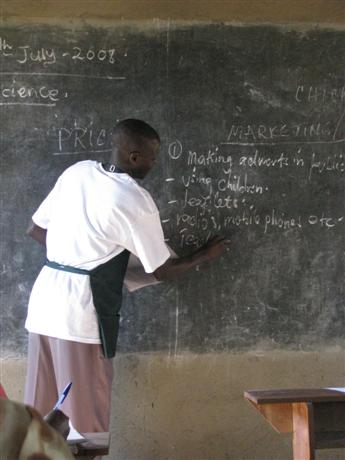 th July - 2008
cience.
CHICK
PRIC
MARKETING
① Making adverts in public
- using children.
- leaflets.
- radios, mobile phones etc-